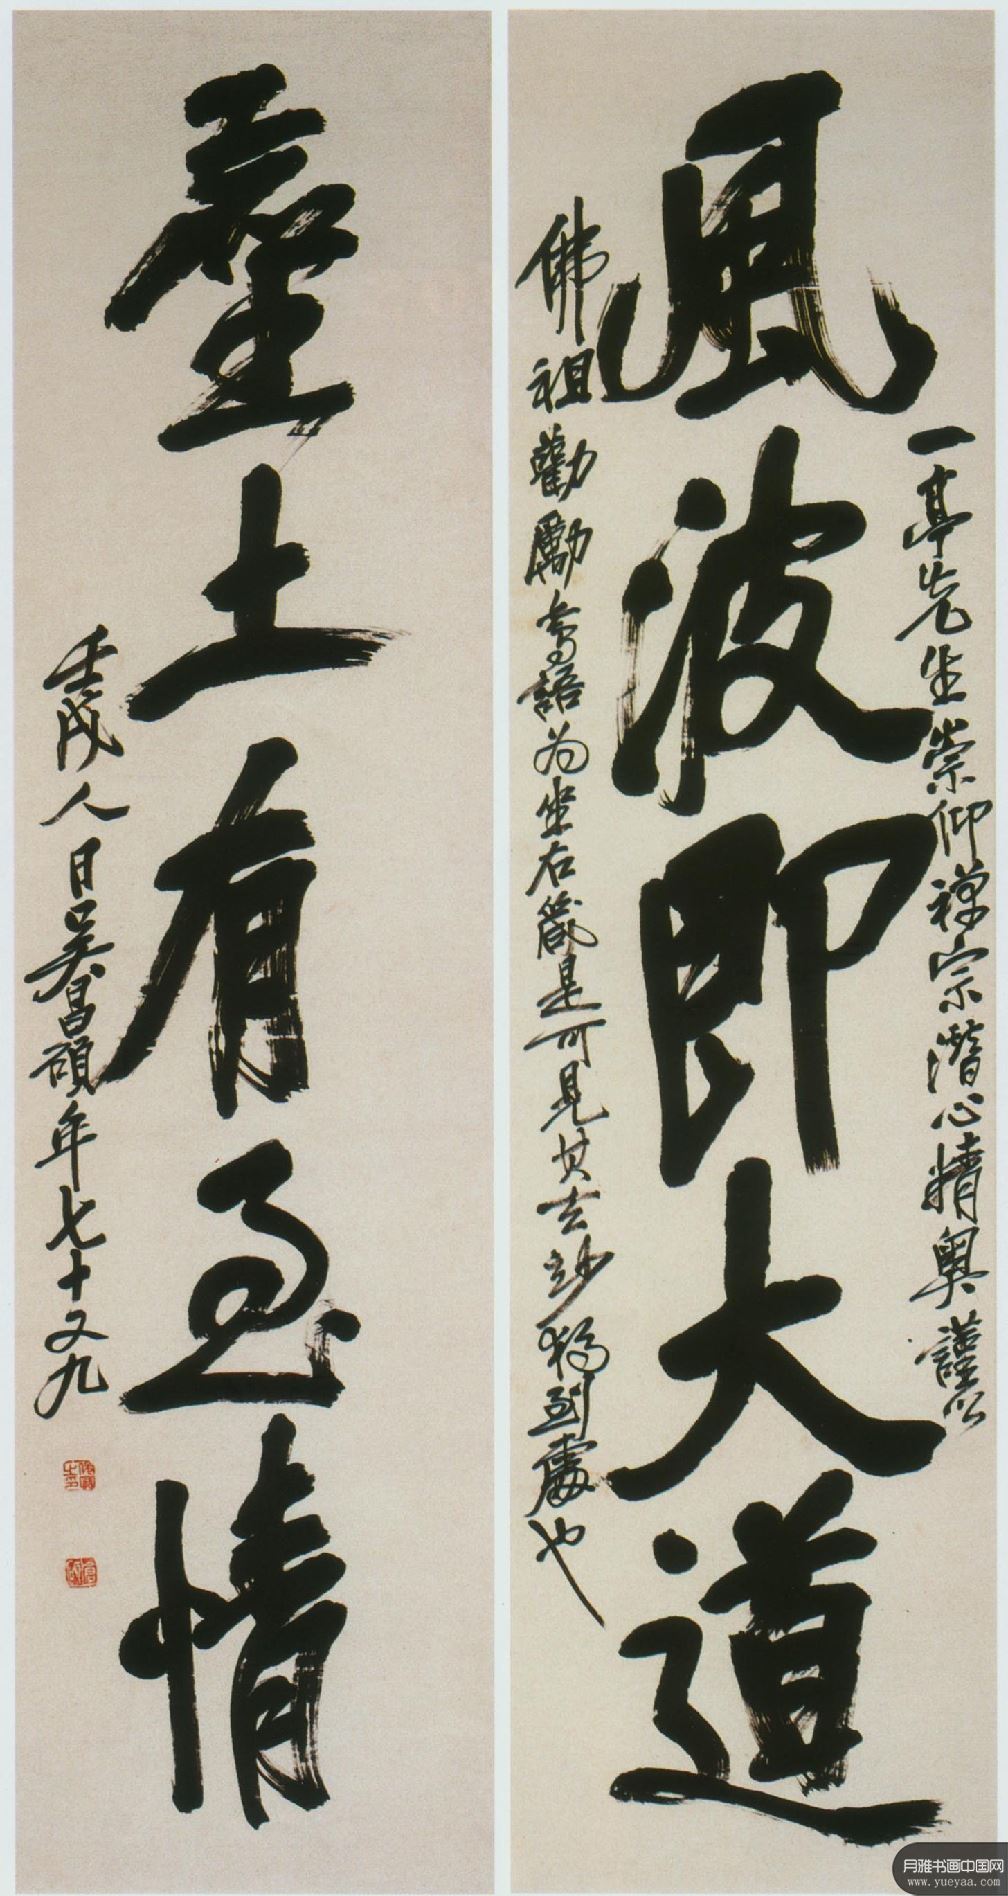 風波即大道
一亭先生崇仰禅宗潛心精奧謹以
佛祖勸勵喬語为坐右箴是可見其玄妙獨到處也
塵土有至情
壬戌人日吳昌碩年七十又九
月雅书画中国网
www.yueyaa.com